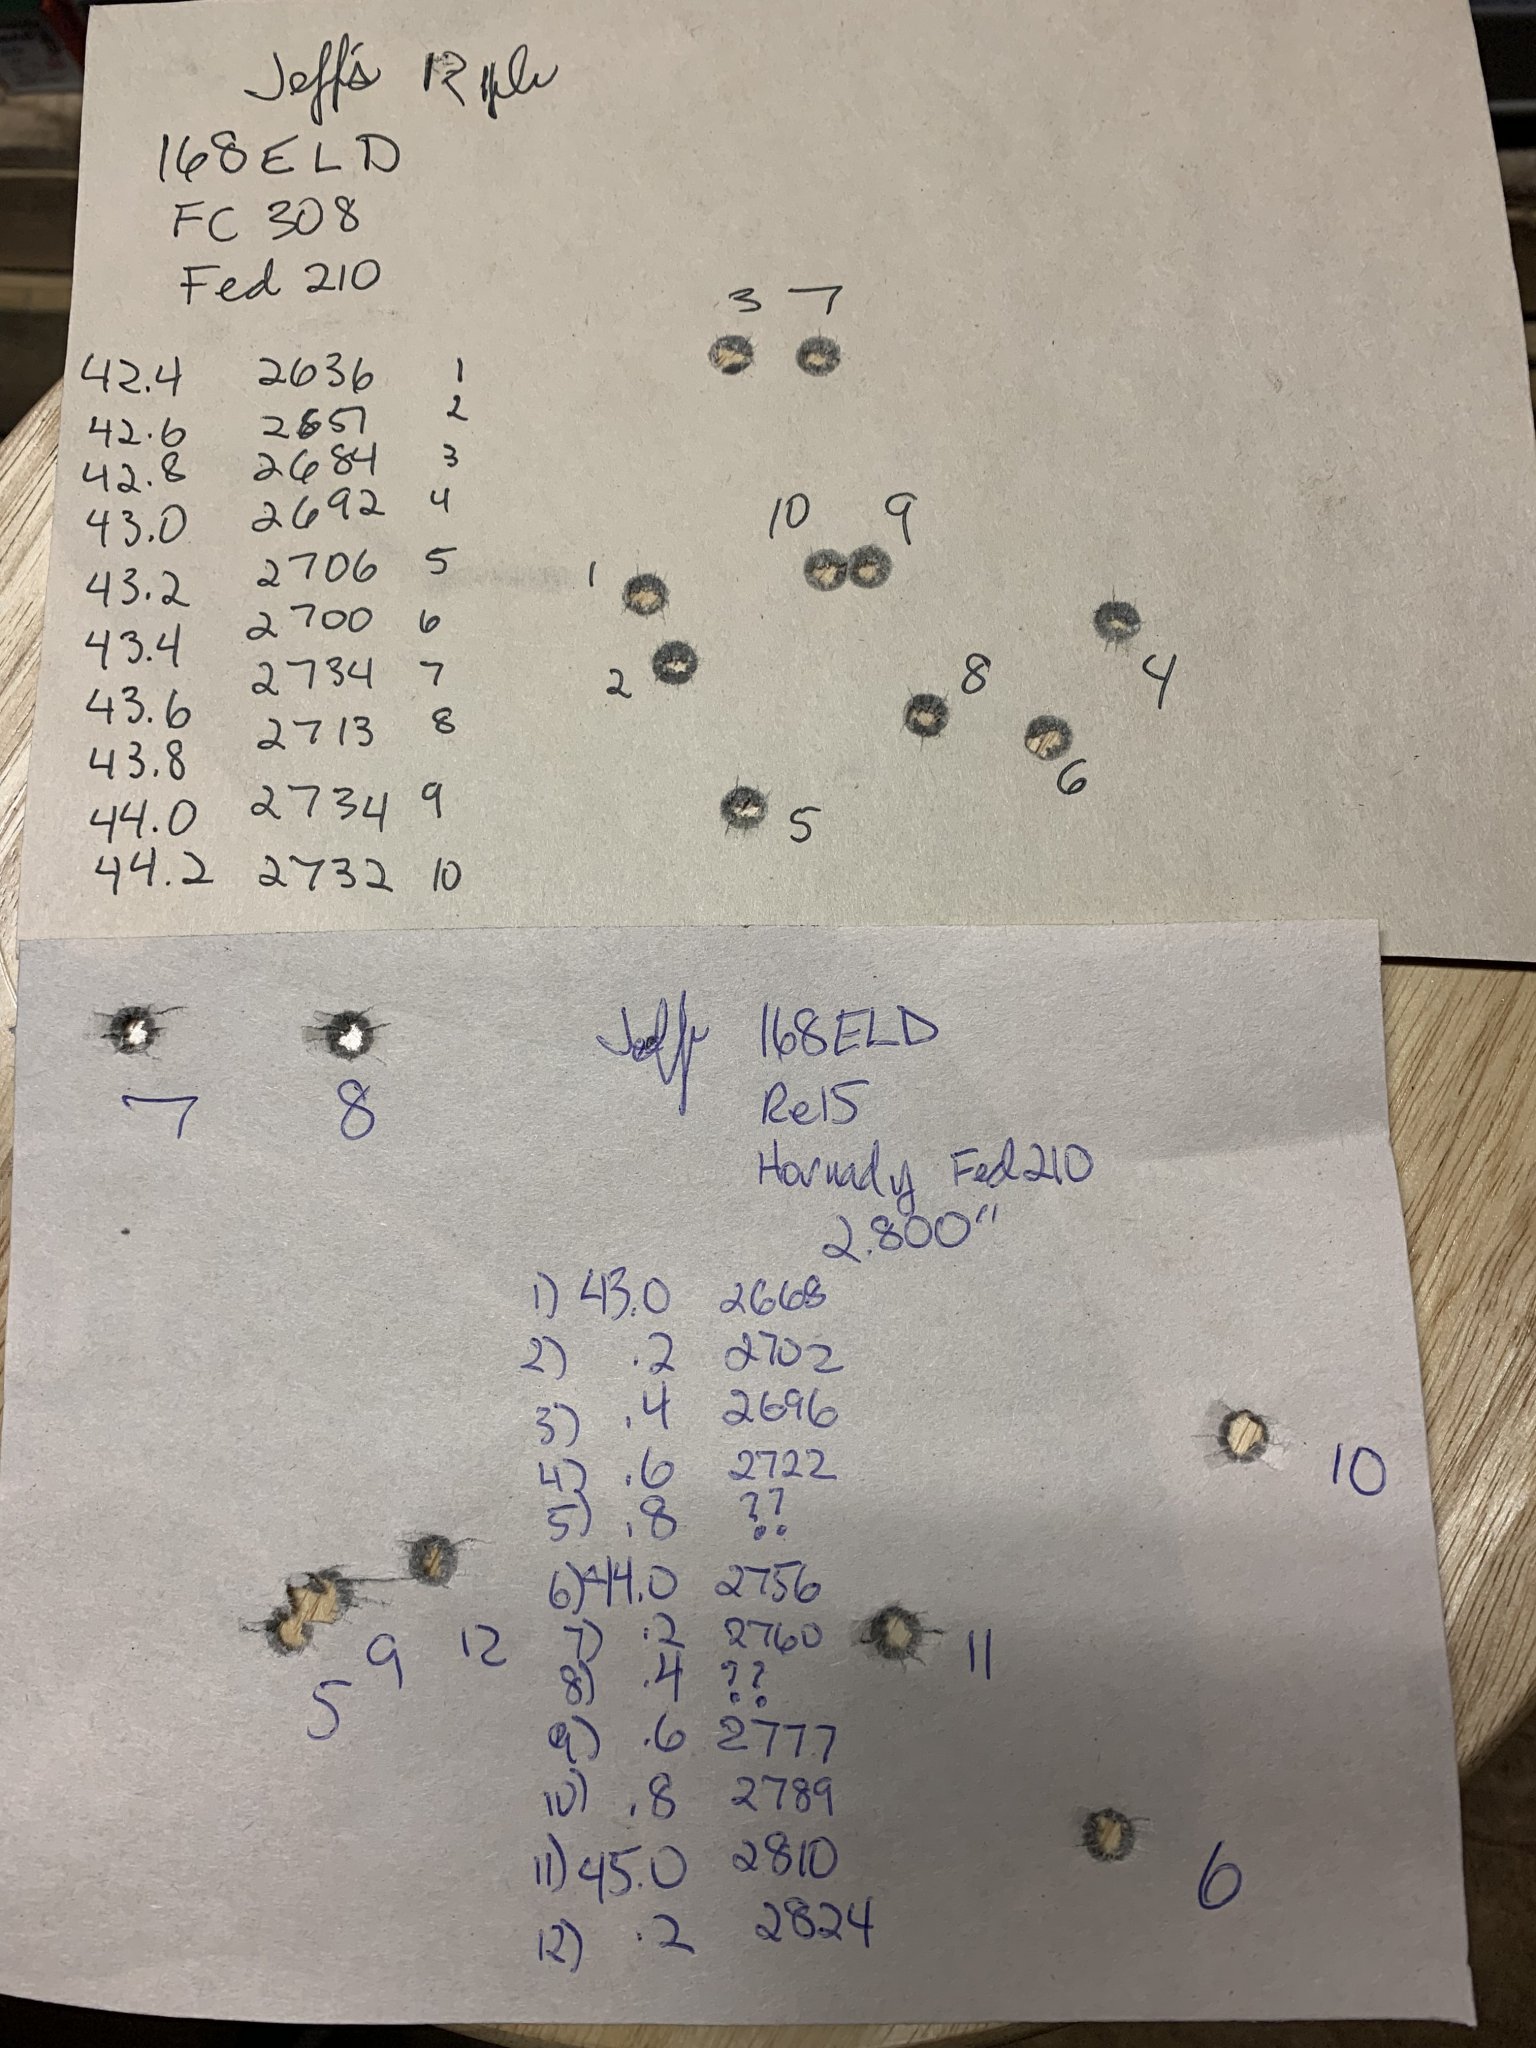 Jeff's Rifle
168ELD
FC 308
Fed 210
3 7
42.4 2636 1
42.6 2657 2
42.8 2684 3
43.0 2692 4
43.2 2706 5
43.4 2700 6
43.6 2734 7
43.8 2713 8
44.0 2734 9
44.2 2732 10
10 9
1
2
8
4
6
5
7 8
Jeff 168ELD
Re15
Hornady Fed210
2.800"
1) 43.0 2668
2) .2 2702
3) .4 2696
4) .6 2722
5) .8 ??
6) 44.0 2756
7) .2 2760
8) .4 ??
9) .6 2777
10) .8 2789
11) 45.0 2810
12) .2 2824
10
9 12
5
11
6